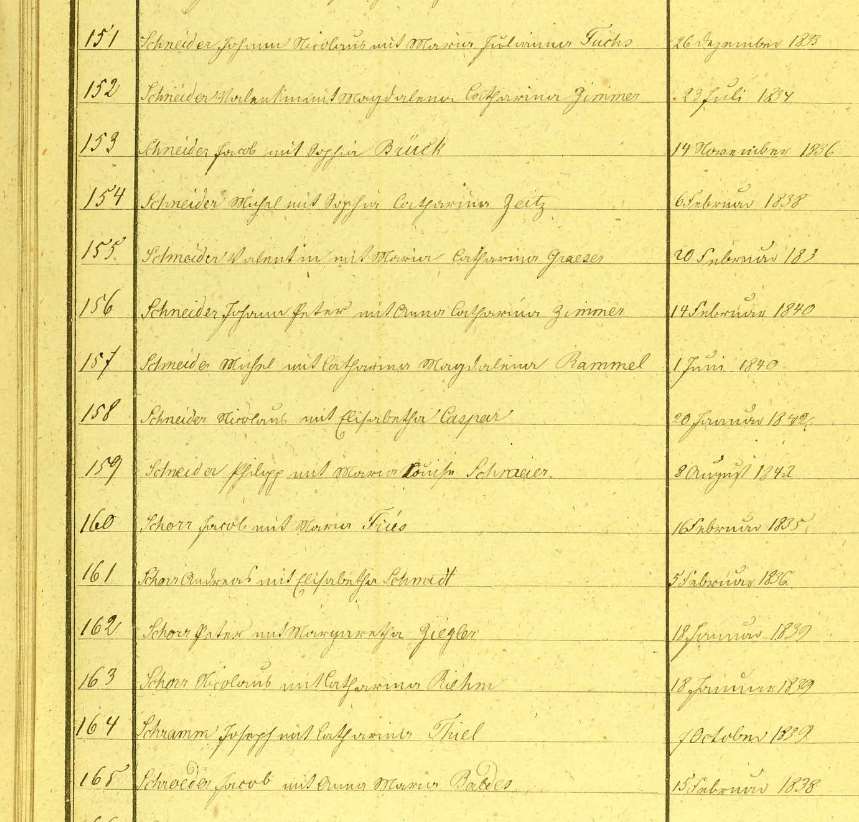 151 Schneider Johann Nicolaus mit Maria Julianna Fuchs 26 Dezember
152 Schneider Valentin mit Magdalena Catharina Zimmer 23 Juli 1834
153 Schneider Jacob mit Sophia Brück 14 November 1836
154 Schneider Michel mit Sophia Catharina Zeitz 6 Februar 1838
155 Schneider Valentin mit Maria Catharina Graeser 20 Februar 183
156 Schneider Johann Peter mit Anna Catharina Zimmer 14 Februar 1840
157 Schneider Michel mit Catharina Magdalena Rammel 1 Juni 1840
158 Schneider Nicolaus mit Elisabetha Caspar 20 Januar 1842
159 Schneider Philipp mit Maria Louise 8 August 1842
160 Schorr Jacob mit Maria 16 Februar 1835
161 Schorr Andreas mit Elisabetha Schmidt 5 Februar 1836
162 Schorr Peter mit Margaretha Ziegler 18 Januar 1839
163 Schorr Nicolaus mit Catharina Riehm 18 Januar 1839
164 Schramm Joseph mit Catharina Thiel October 1839
165 Schroeder Jacob mit Anna Maria Baldes 15 Februar 1838